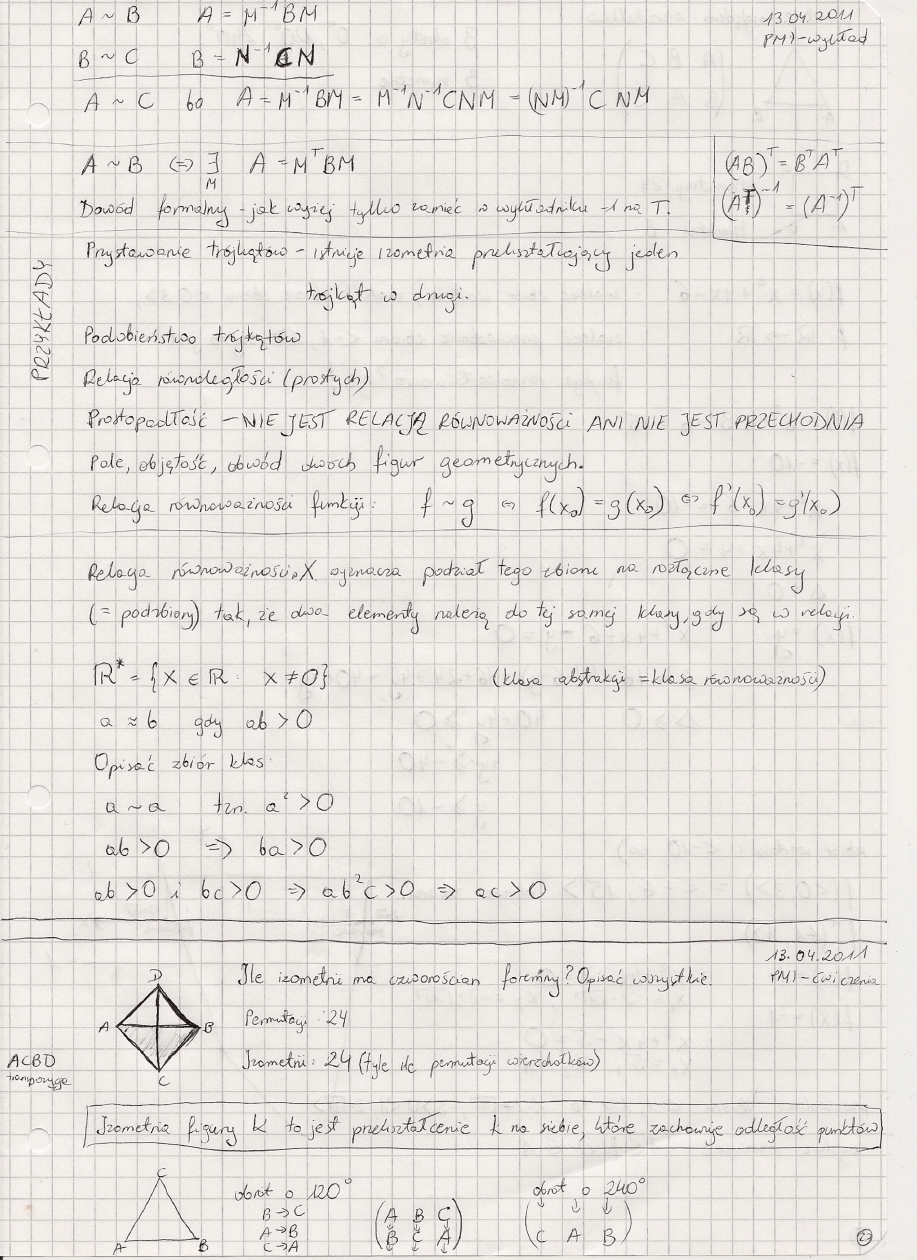 A ~ B A = M⁻¹BM
13.04.2011
PMI-wykład
B ~ C B = N⁻¹CN
A ~ C bo A = M⁻¹BM = M⁻¹N⁻¹CNM = (NM)⁻¹C NM
A ~ B ⇔ ∃ A = MᵀBM
M
(AB)ᵀ = BᵀAᵀ
(Aᵀ)⁻¹ = (A⁻¹)ᵀ
Dowód formalny - jak wyżej tylko zamieć w wykładniku -1 na T.
PRZYKŁADY
Przystawanie trójkątów - istnieje izometria przekształcający jeden
trójkąt w drugi.
Podobieństwo trójkątów
Relacja równoległości (prostych)
Prostopadłość - NIE JEST RELACJĄ RÓWNOWAŻNOŚCI ANI NIE JEST PRZECHODNIA
Pole, objętość, obwód dwóch figur geometrycznych.
Relacja równoważności funkcji: f ~ g ⇔ f(x₀) = g(x₀) ⇔ f'(x₀) = g'(x₀)
Relacja równoważności X oznacza podział tego zbioru na rozłączne klasy
(= podzbiory) tak, że dwa elementy należą do tej samej klasy, gdy są w relacji.
ℝ* = {x ∈ ℝ: x ≠ 0} (klasa abstrakcji = klasa równoważności)
a ≈ b gdy ab > 0
Opisać zbiór klas:
a ~ a tzn. a² > 0
ab > 0 ⇒ ba > 0
ab > 0 i bc > 0 ⇒ ab²c > 0 ⇒ ac > 0
13.04.2011
PMI - ćwiczenia
D
A
B
C
ACBD
transpozycja
Ile izometrii ma czworościan foremny? Opisać wszystkie.
Permutacji: 24
Izometrii: 24 (tyle ile permutacji wierzchołków)
Izometria figury k to jest przekształcenie k na siebie, które zachowuje odległość punktów
C
A B
obrót o 120°
B → C
A → B
C → A
(A B C)
↓ ↓ ↓
(B C A)
obrót o 240°
↓ ↓ ↓
(C A B)
27